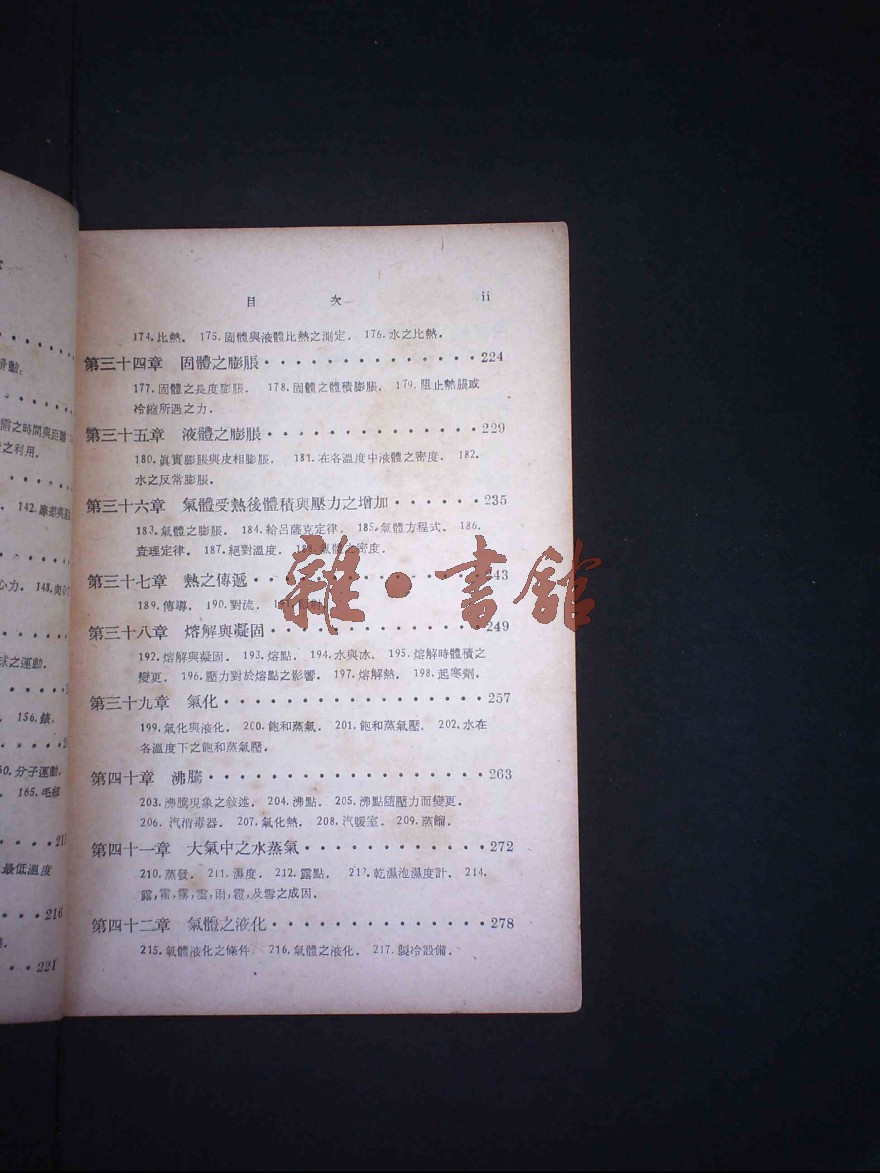 動。
之時間與距離
之利用.
142.
心力. 148.
球之運動.
156.錶.
分子運動.
165.毛細
最低溫度
216
221
目 次 ii
174.比熱. 175.固體與液體比熱之測定. 176.水之比熱.
第三十四章 固體之膨脹・・・・・・・・・・・・・・224
177.固體之長度膨脹. 178.固體之體積膨脹. 179.阻止熱脹或
冷縮所遇之力.
第三十五章 液體之膨脹・・・・・・・・・・・・・・229
180.眞實膨脹與皮相膨脹. 181.在各溫度中液體之密度. 182.
水之反常膨脹.
第三十六章 氣體受熱後體積與壓力之增加・・・・・・235
183.氣體之膨脹. 184.給呂薩克定律. 185.氣體方程式. 186.
査理定律. 187.絕對溫度. 188.氣體之密度.
第三十七章 熱之傳遞・・・・・・・・・・・・・・・243
189.傳導. 190.對流. 191.
第三十八章 熔解與凝固・・・・・・・・・・・・・・249
192.熔解與凝固. 193.熔點. 194.水與冰. 195.熔解時體積之
變更. 196.壓力對於熔點之影響. 197.熔解熱. 198.起寒劑.
第三十九章 氣化・・・・・・・・・・・・・・・・・257
199.氣化與液化. 200.飽和蒸氣. 201.飽和蒸氣壓. 202.水在
各溫度下之飽和蒸氣壓.
第四十章 沸騰・・・・・・・・・・・・・・・・・・263
203.沸騰現象之敍述. 204.沸點. 205.沸點隨壓力而變更.
206.汽消毒器. 207.氣化熱. 208.汽暖室. 209.蒸餾.
第四十一章 大氣中之水蒸氣・・・・・・・・・・・・272
210.蒸發. 211.濕度. 212.露點. 213.乾濕泡濕度計. 214.
露,霜,霧,雲,雨,雹,及雪之成因.
第四十二章 氣體之液化・・・・・・・・・・・・・・278
215.氣體液化之條件. 216.氣體之液化. 217.製冷設備.
雜・書館